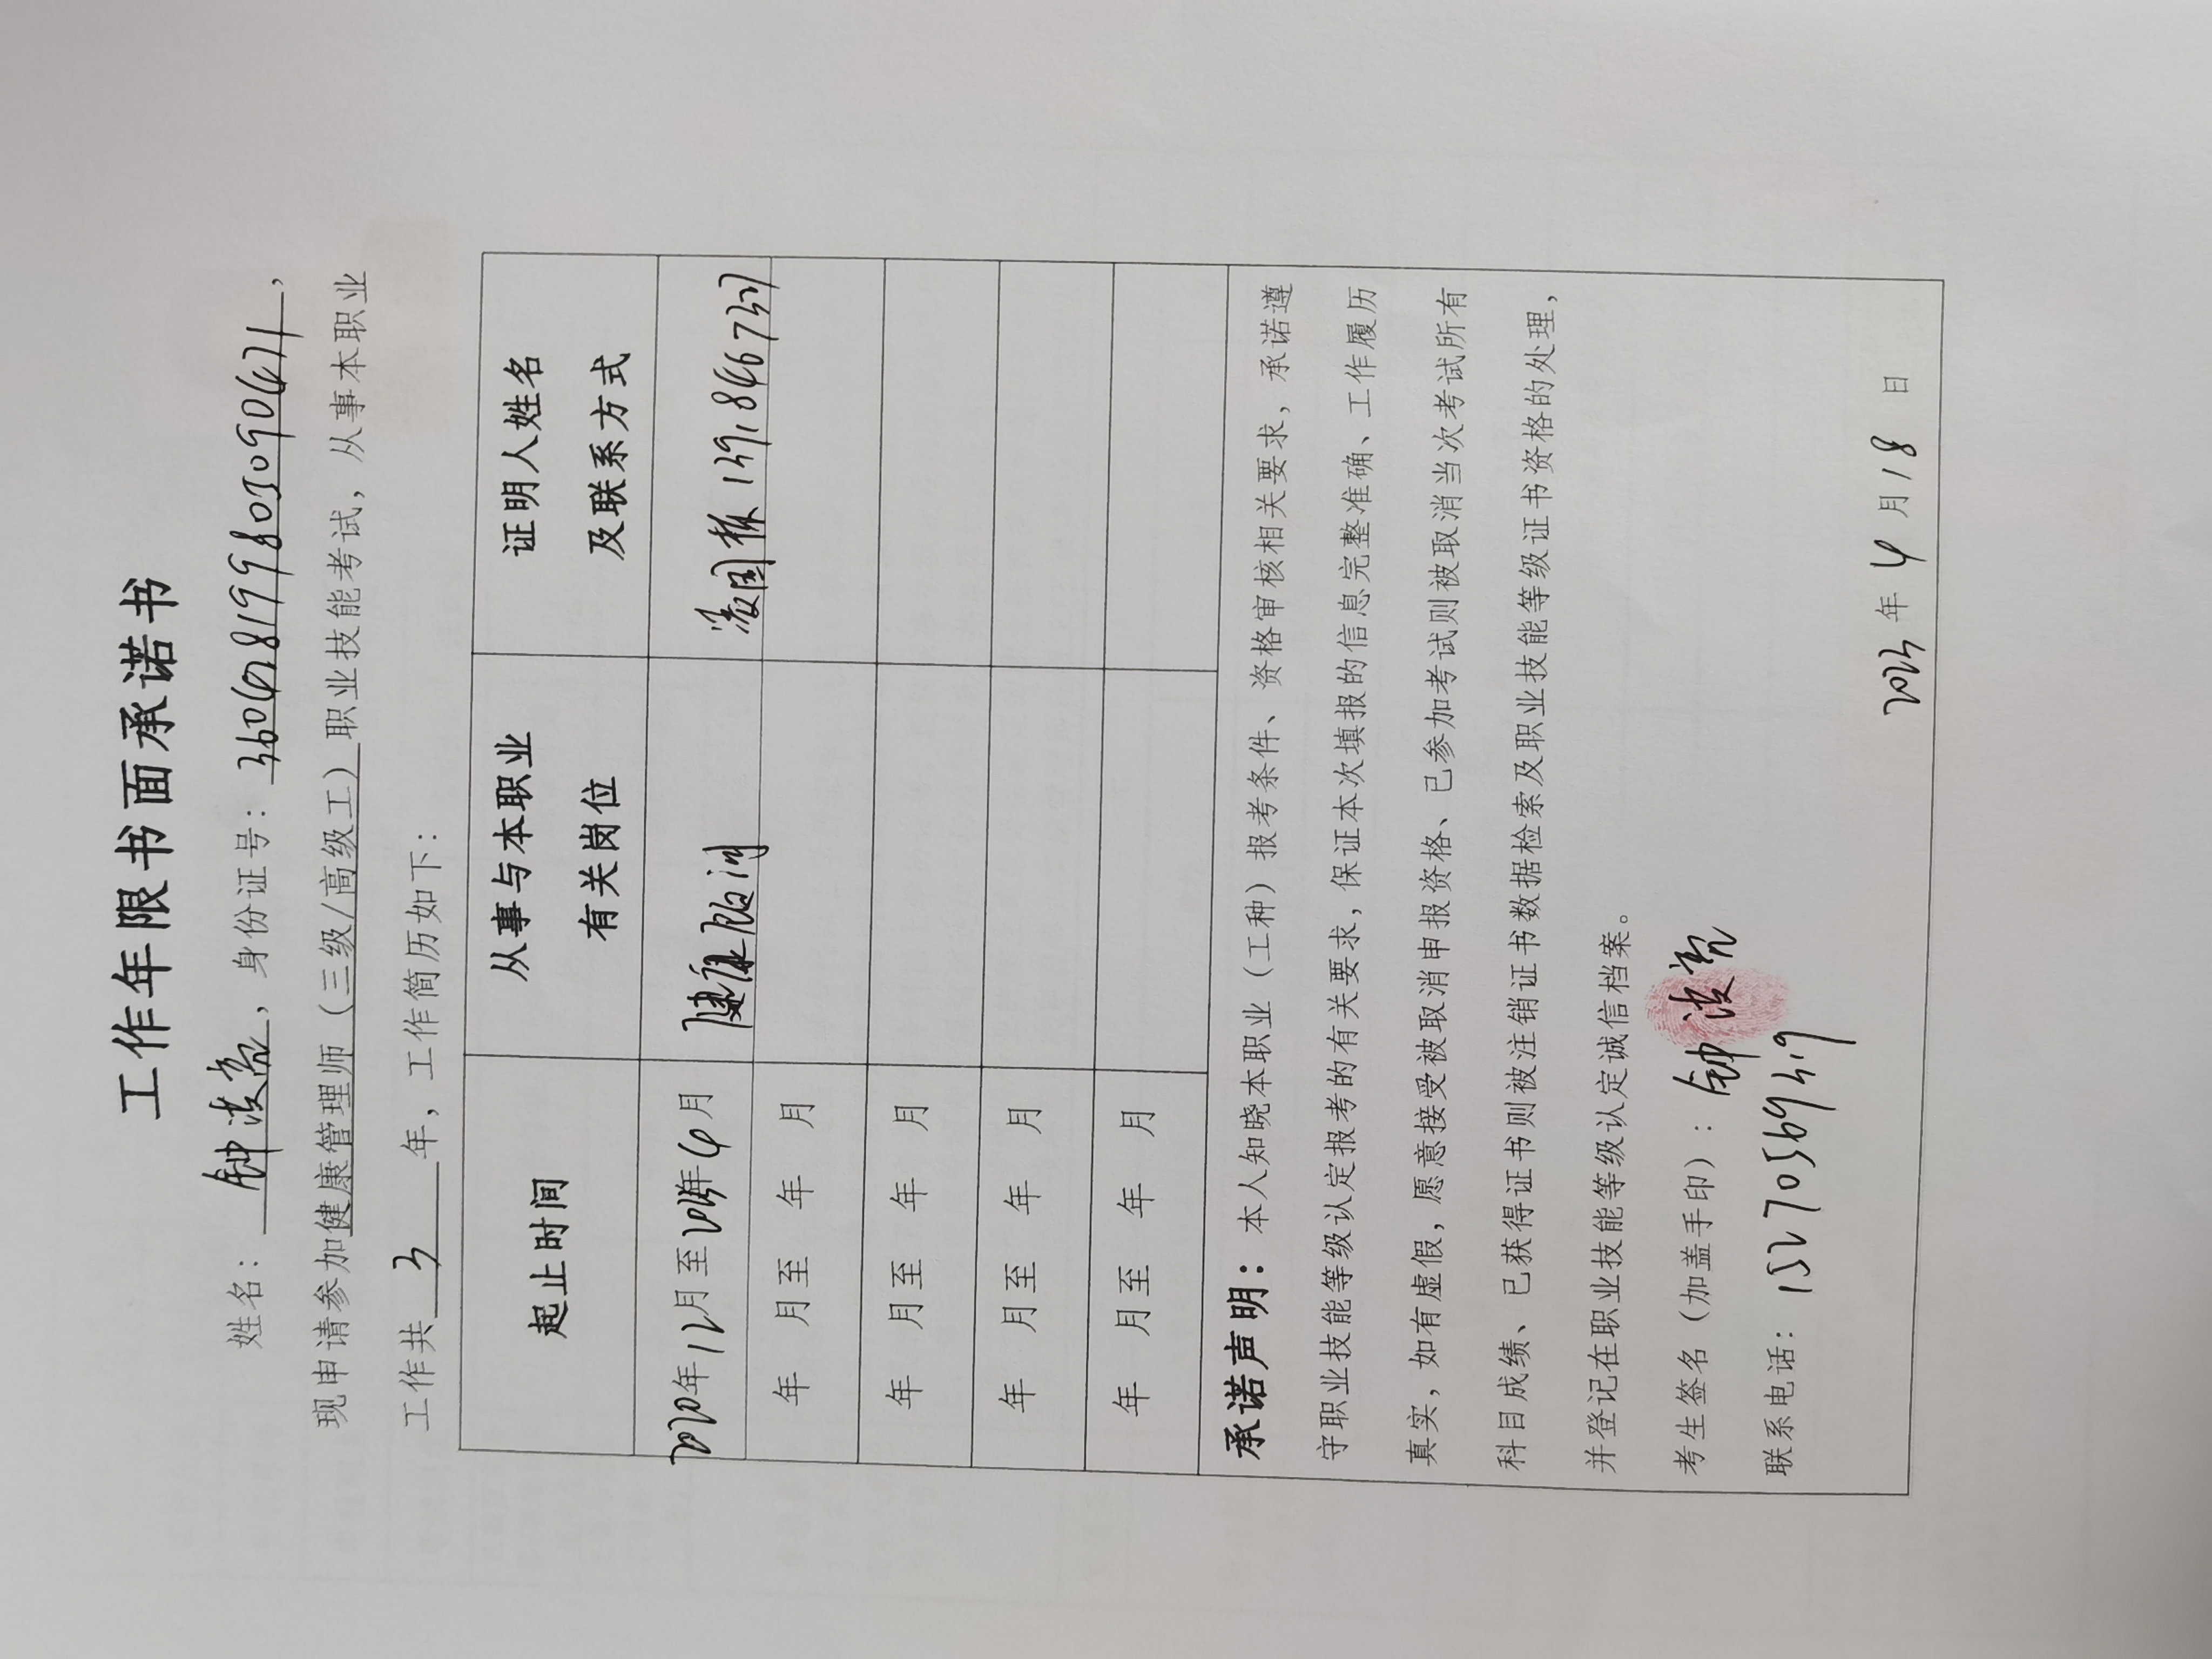 工作年限书面承诺书
姓名：钟波亮，身份证号：，
现申请参加健康管理师（三级/高级工）职业技能考试，从事本职业
工作共3年，工作简历如下：
起止时间 从事与本职业有关岗位 证明人姓名及联系方式
2020年12月至2023年4月 健康顾问 凌国栋
年 月至 年 月
年 月至 年 月
年 月至 年 月
年 月至 年 月
承诺声明：本人知晓本职业（工种）报考条件、资格审核相关要求，承诺遵
守职业技能等级认定报考的有关要求，保证本次填报的信息完整准确、工作履历
真实，如有虚假，愿意接受被取消申报资格、已参加考试则被取消当次考试所有
科目成绩、已获得证书则被注销证书数据检索及职业技能等级证书资格的处理，
并登记在职业技能等级认定诚信档案。
考生签名（加盖手印）：钟波亮
联系电话：
2023年4月18日